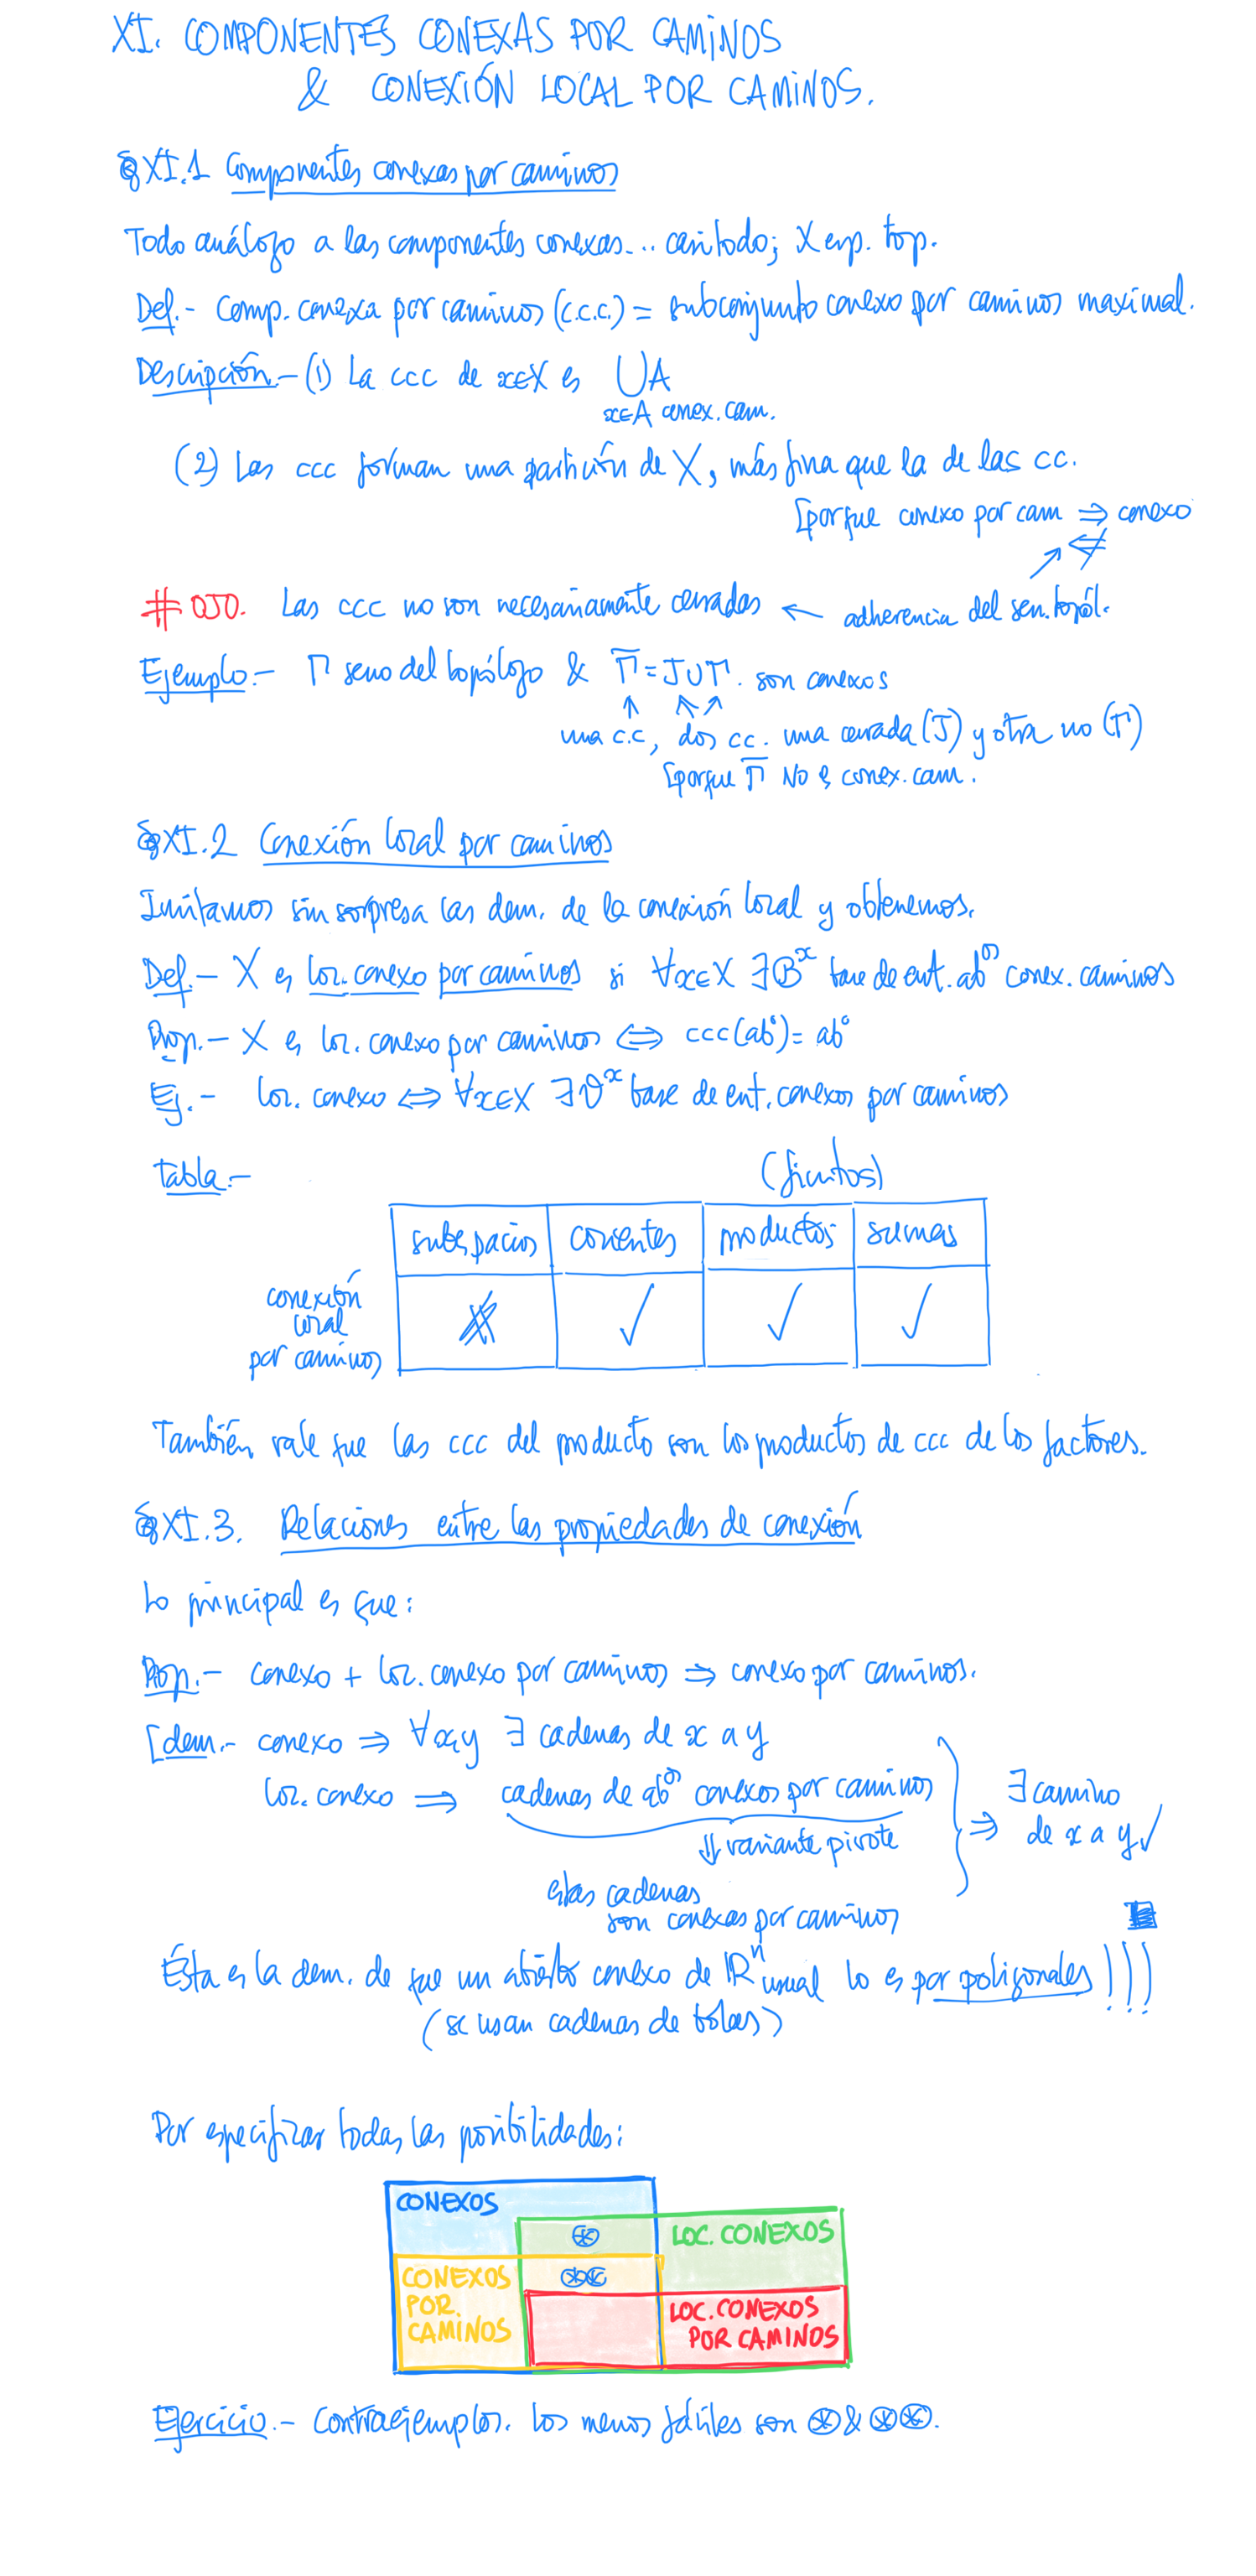 XI. COMPONENTES CONEXAS POR CAMINOS
& CONEXIÓN LOCAL POR CAMINOS.
§XI.1 Componentes conexas por caminos
Todo análogo a las componentes conexas... casi todo; X esp. top.
Def.- Comp. conexa por caminos (c.c.c.) = subconjunto conexo por caminos maximal.
Descripción.- (1) La ccc de x∈X es ⋃A
x∈A conex. cam.
(2) Las ccc forman una partición de X, más fina que la de las cc.
[porque conexo por cam ⇒ conexo
⇍
# OJO. Las ccc no son necesariamente cerradas ← adherencia del sen. topól.
Ejemplo.- Γ seno del topólogo & Γ̅ = J∪Γ. son conexos
↑ ↖ ↗
una c.c, dos cc. una cerrada (J) y otra no (Γ)
[porque Γ̅ No es conex. cam.
§XI.2 Conexión local por caminos
Imitamos sin sorpresa las dem. de la conexión local y obtenemos.
Def.- X es loc. conexo por caminos si ∀x∈X ∃𝓑ˣ base de ent. abᵒˢ conex. caminos
Prop.- X es loc. conexo por caminos ⇔ ccc(abᵒ) = abᵒ
Ej.- loc. conexo ⇔ ∀x∈X ∃𝒱ˣ base de ent. conexos por caminos
Tabla.- (finitos)
subespacios cocientes productos sumas
conexión
local
por caminos ✓ ✓ ✓
También vale que las ccc del producto son los productos de ccc de los factores.
§XI.3. Relaciones entre las propiedades de conexión
Lo principal es que:
Prop.- conexo + loc. conexo por caminos ⇒ conexo por caminos.
[dem.- conexo ⇒ ∀x,y ∃ cadenas de x a y
loc. conexo ⇒ cadenas de abᵒˢ conexos por caminos } ⇒ ∃ camino
de x a y ✓
⇓ variante pivote
estas cadenas
son conexas por caminos
Ésta es la dem. de que un abierto conexo de ℝⁿ usual lo es por poligonales!!!
(se usan cadenas de bolas)
Por especificar todas las posibilidades:
CONEXOS
⊛ LOC. CONEXOS
CONEXOS
POR.
CAMINOS
⊛⊛
LOC. CONEXOS
POR CAMINOS
Ejercicio.- Contraejemplos. Los menos fáciles son ⊛ & ⊛⊛.